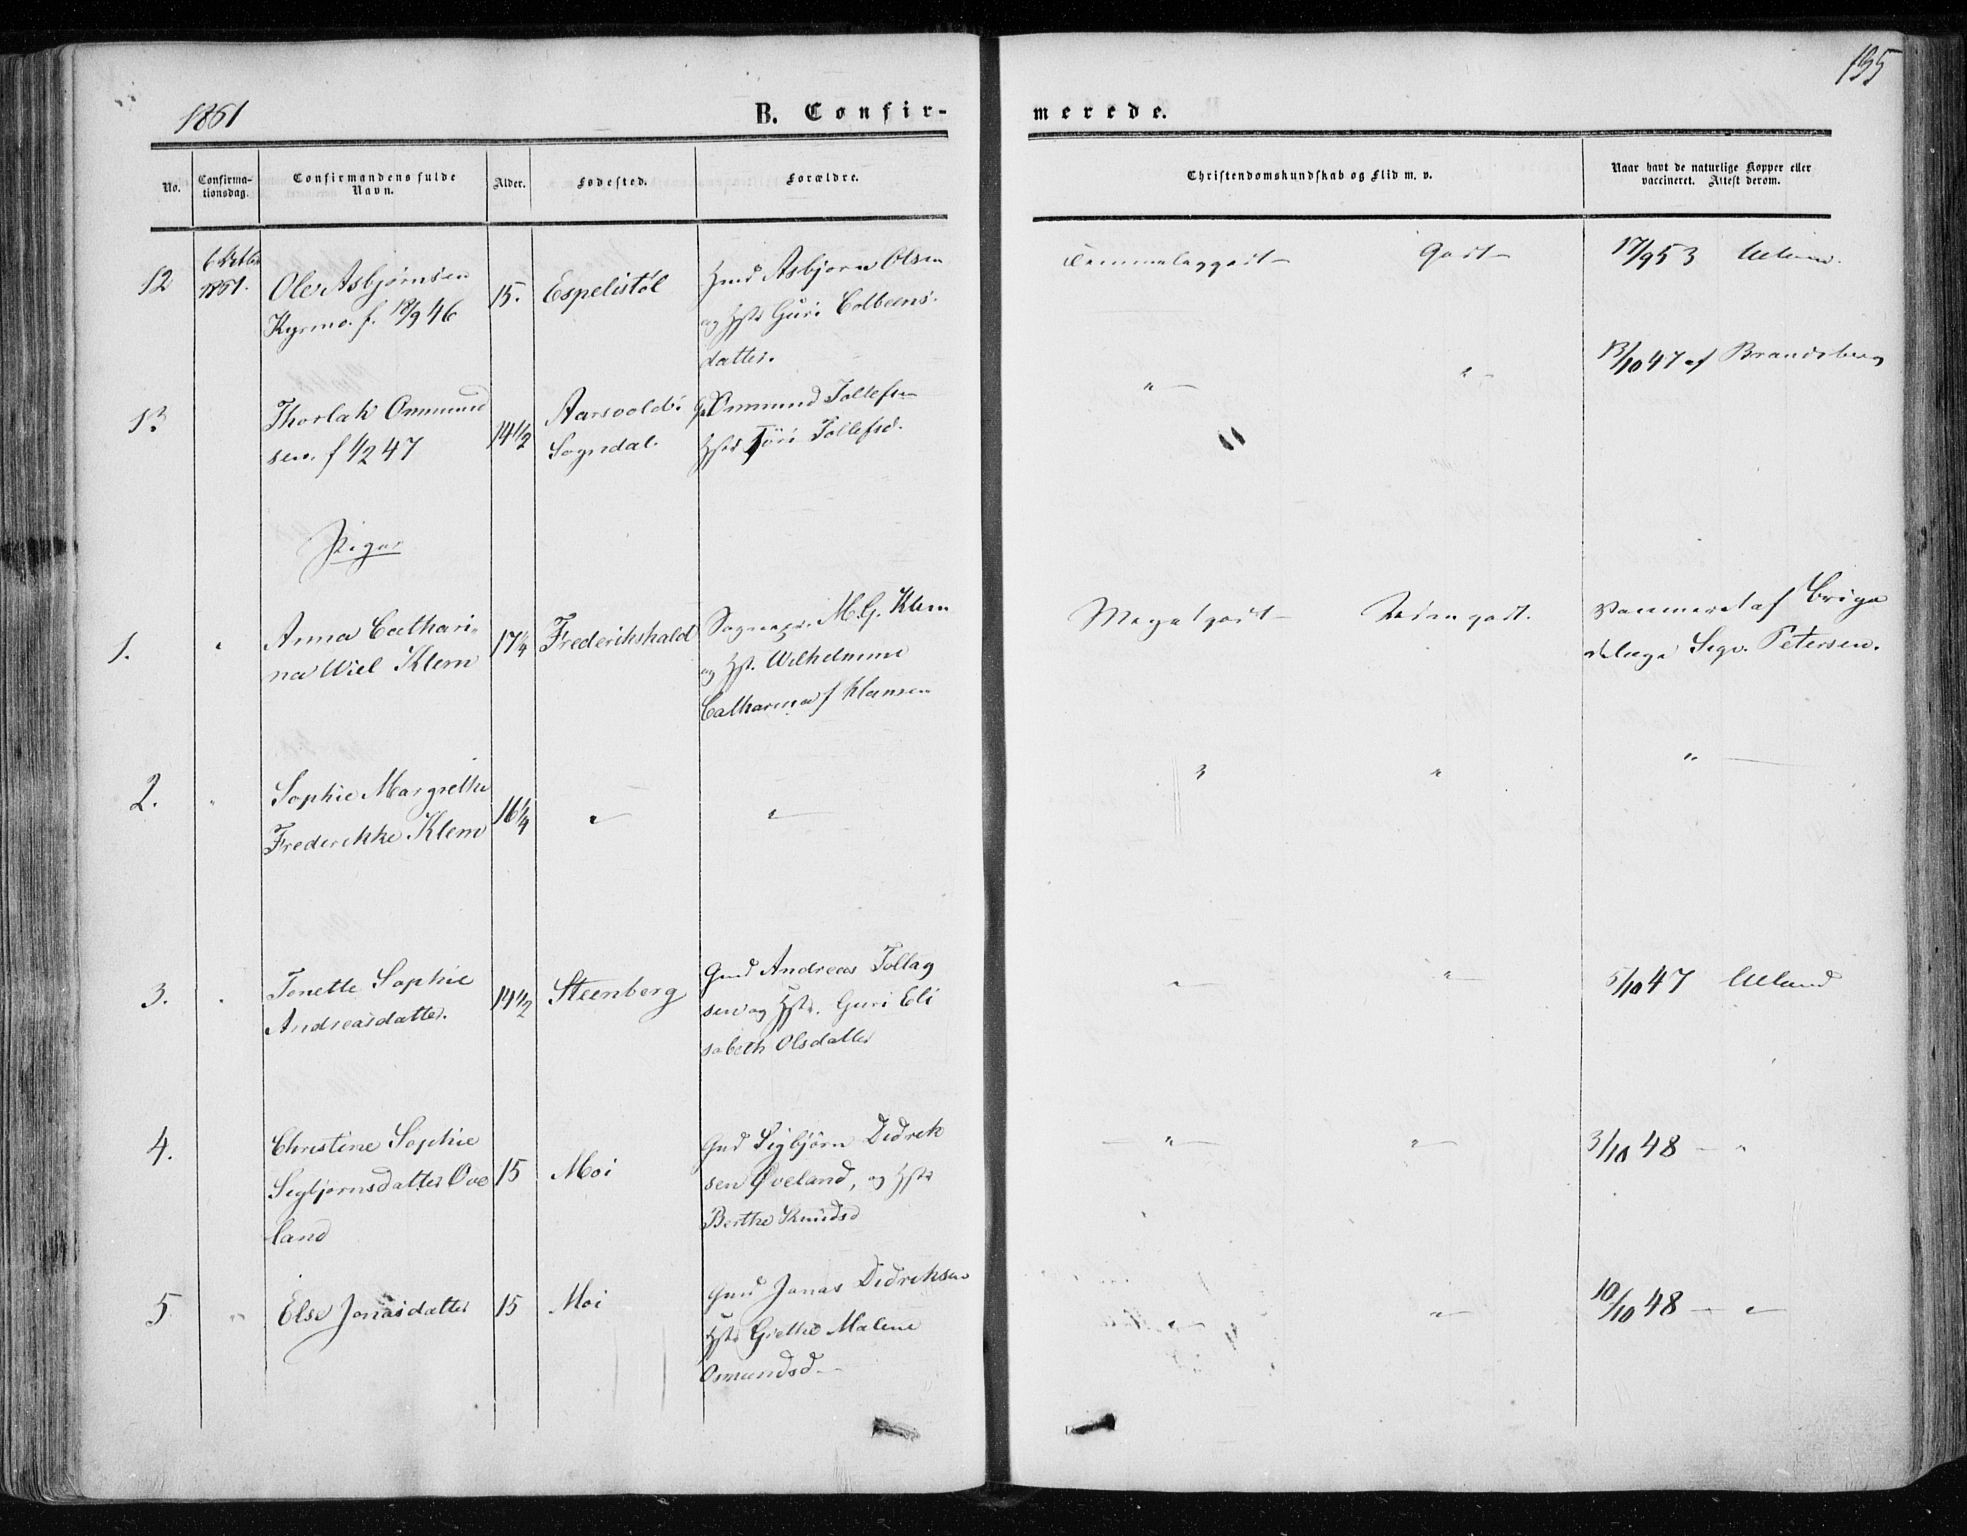 195
1861
B. Confir-
merede.
No.
Confirma-
tionsdag.
Confirmandens fulde
Navn.
Alder.
Fødested.
Forældre.
Christendomskundskab og Flid m. v.
Naar havt de naturlige Kopper eller
vaccineret. Attest derom.
12
6 Octbr
1861.
Ole Asbjørnsen
Kyrmo. f. 18/9 46
15.
Espelistøl
Gmd Asbjørn Olsen
og Hst Guri Colbens
datter.
Temmelig godt
Godt
17/9 53
Ueland.
13
Thorlak Ommund
sen. f 1/2 47
14 1/2
Aarsvold i
Sogndal.
Ommund Tollefsen
Hst Turi Tollefsd.
" —
" —
13/10 47 af Brandsberg
Piger
1.
"
Anna Cathari-
na Wiel Klem
17 1/4
Frederikshald
Sognepr. M. G. Klem
og Hst. Wilhelmine
Catharina f Klausen
Meget godt
godt.
Vaccineret af Briga
delæge Sigv. Petersen.
2.
"
Sophie Margrethe
Frederikke Klem
16 1/4
" —
" —
"
"
" —
3.
"
Tonette Sophie
Andreasdatter.
14 1/2
Steenberg
Gmd Andreas Tollag
sen og Hst. Guri Eli
sabeth Olsdatter
" —
" —
5/10 47 Ueland
4.
Christine Sophie
Sigbjørnsdatter Øve
land
15
Moi
Gmd Sigbjørn Didrik
sen Øveland, og Hst
Berthe Knudsd
— " —
" —
3/10 48 — "
5.
"
Else Jonasdatter
15
Moi
Gmd Jonas Didriksen
Hst Grethe Malene
Osmundsd. —
" —
" —
10/10 48 — " —